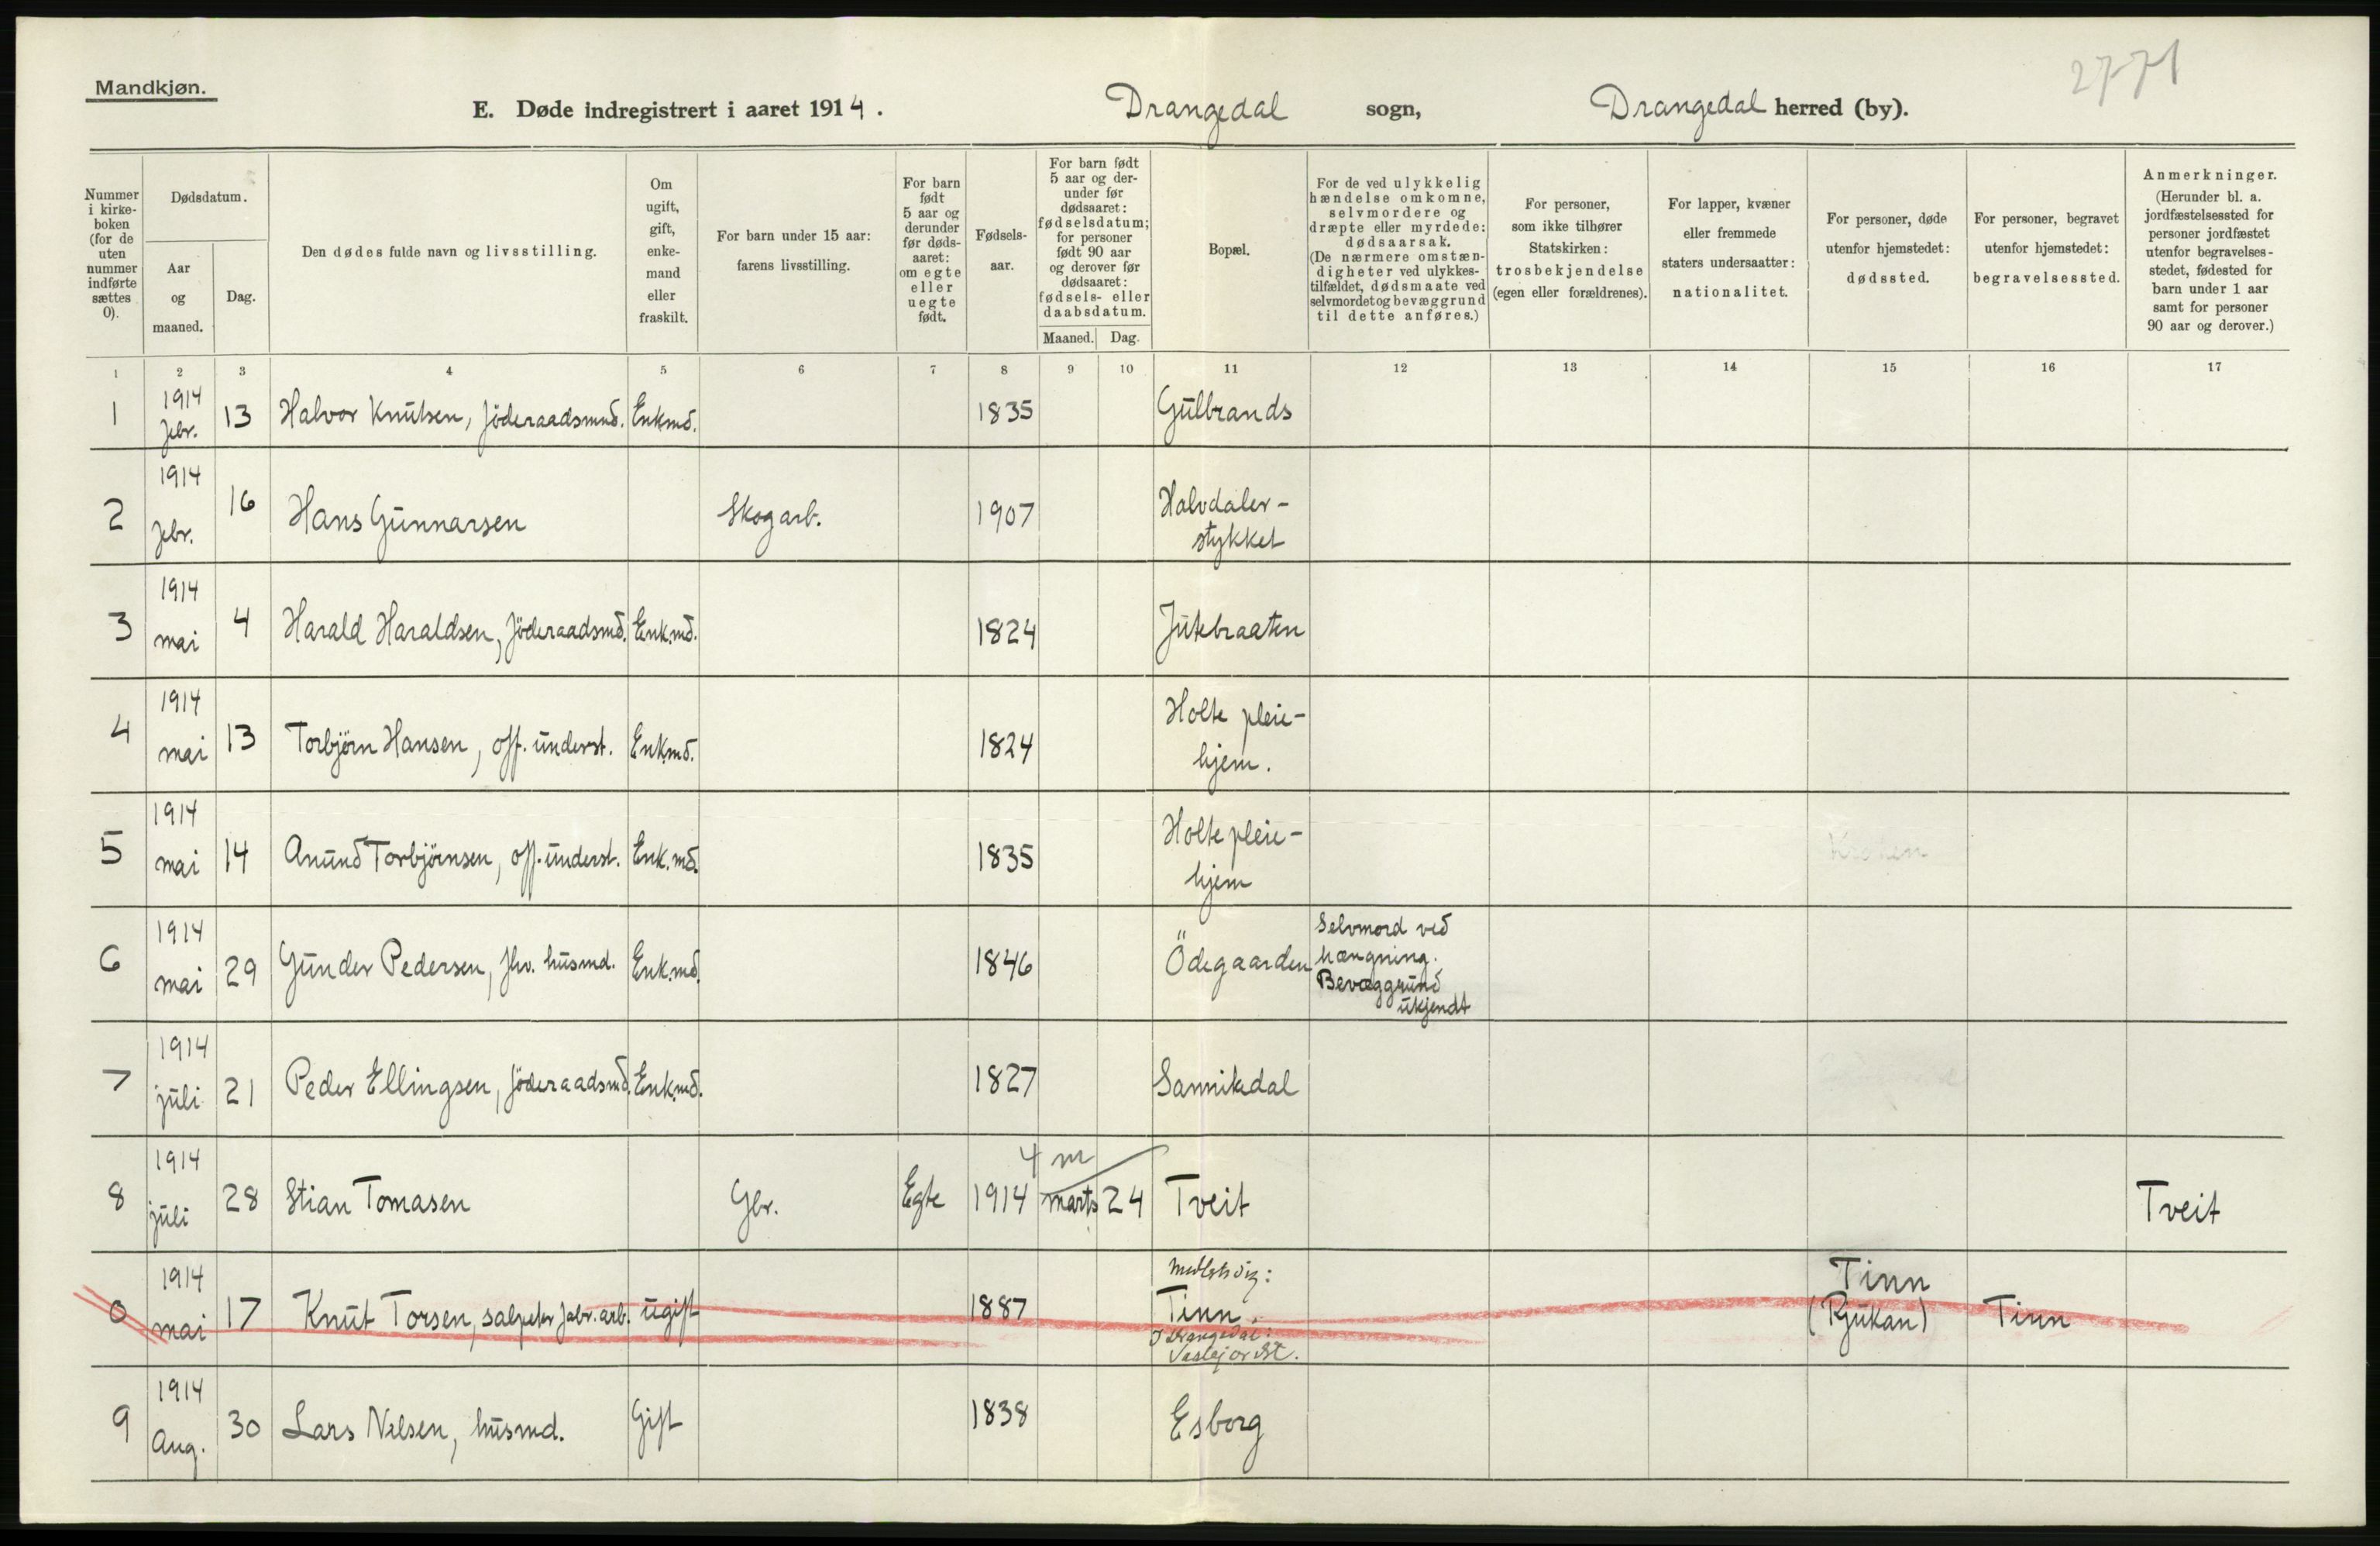 Mandkjøn.
2771
E. Døde indregistrert i aaret 1914. Drangedal sogn, Drangedal herred (by).
Nummer i kirke- boken (for de uten nummer indførte sættes 0).
Dødsdatum.
Aar og maaned.
Dag.
Den dødes fulde navn og livsstilling.
Om ugift, gift, enke- mand eller fraskilt.
For barn under 15 aar: farens livsstilling.
For barn født 5 aar og derunder før døds- aaret: om egte eller uegte født.
Fødsels- aar.
For barn født 5 aar og der- under før dødsaaret: fødselsdatum; for personer født 90 aar og derover før dødsaaret: fødsels- eller daabsdatum.
Maaned. Dag.
Bopæl.
For de ved ulykkelig hændelse omkomne, selvmordere og dræpte eller myrdede: dødsaarsak. (De nærmere omstæn- digheter ved ulykkes- tilfældet, dødsmaate ved selvmordet og bevæggrund til dette anføres.)
For personer, som ikke tilhører Statskirken: trosbekjendelse (egen eller forældrenes).
For lapper, kvæner eller fremmede staters undersaatter: nationalitet.
For personer, døde utenfor hjemstedet: dødssted.
For personer, begravet utenfor hjemstedet: begravelsessted.
Anmerkninger. (Herunder bl. a. jordfæstelsessted for personer jordfæstet utenfor begravelses- stedet, fødested for barn under 1 aar samt for personer 90 aar og derover.)
1 2 3 4 5 6 7 8 9 10 11 12 13 14 15 16 17
1 1914 febr. 13 Halvor Knutsen, föderaadsmd. Enkmd. 1835 Gulbrands
2 1914 febr. 16 Hans Gunnarsen Skogarb. 1907 Halvdaler-
stykket
3 1914 mai 4 Harald Haraldsen, föderaadsmd. Enk.md. 1824 Jukebraaten
4 1914 mai 13 Torbjörn Hansen, off. underst. Enkmd. 1824 Holte pleie-
hjem.
5 1914 mai 14 Anund Torbjörnsen, off. underst. Enk.md. 1835 Holte pleie-
hjem
6 1914 mai 29 Gunder Pedersen, fhv. husmd. Enk.md. 1846 Ödegaarden Selvmord ved
hængning.
Bevæggrund
ukjendt
7 1914 juli 21 Peder Ellingsen, föderaadsmd. Enk.md. 1827 Sannikedal
4 m
8 1914 juli 28 Stian Tomasen Gbr. Egte 1914 marts 24 Tveit Tveit
0 1914 mai 17 Knut Torsen, salpeterfabr.arb. ugift 1887 Tinn. Tinn
(Rjukan) Tinn
I Drangedal:
9 1914 Aug. 30 Lars Nilsen, husmd. Gift 1838 Esborg